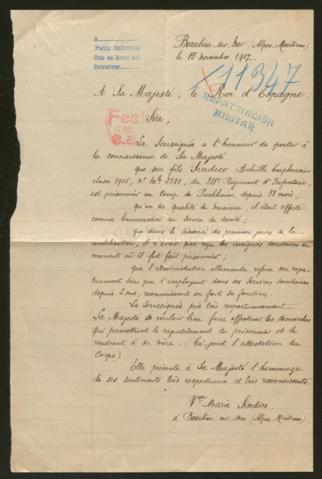 Beaulieu-sur-Mer (Alpes Maritimes)
le 15 novembre 1917
11347
REPATRIACIÓN
MILITAR
A Sa Majesté, le Roi d'Espagne
Sire,
La Soussignée a l'honneur de porter à
la connaissance de Sa Majesté
que son fils Sindico Achille
classe 1905, du 311e Régiment d'Infanterie
est prisonnier au camp de depuis 35 mois;
qu'en sa qualité de musicien, il était affecté
comme brancardier au Service de Santé;
que dans le désordre des premiers jours de la
mobilisation, il n'avait pas reçu les insignes sanitaires au
moment où il fut fait prisonnier;
que l'administration allemande refuse son rapa-
triement bien que l'employant dans ses Services sanitaires
depuis 2 ans, reconnaissant en fait sa fonction.
La Soussignée prie très respectueusement
Sa Majesté de vouloir bien faire effectuer les demandes
qui permettront le rapatriement du prisonnier et le
rendront à sa mère. (Ci-joint l'attestation du
Corps)
Elle présente à Sa Majesté l'hommage
de ses sentiments très respectueux et très reconnaissants.
Vve Maria Sindico
à Beaulieu sur Mer (Alpes Maritimes)